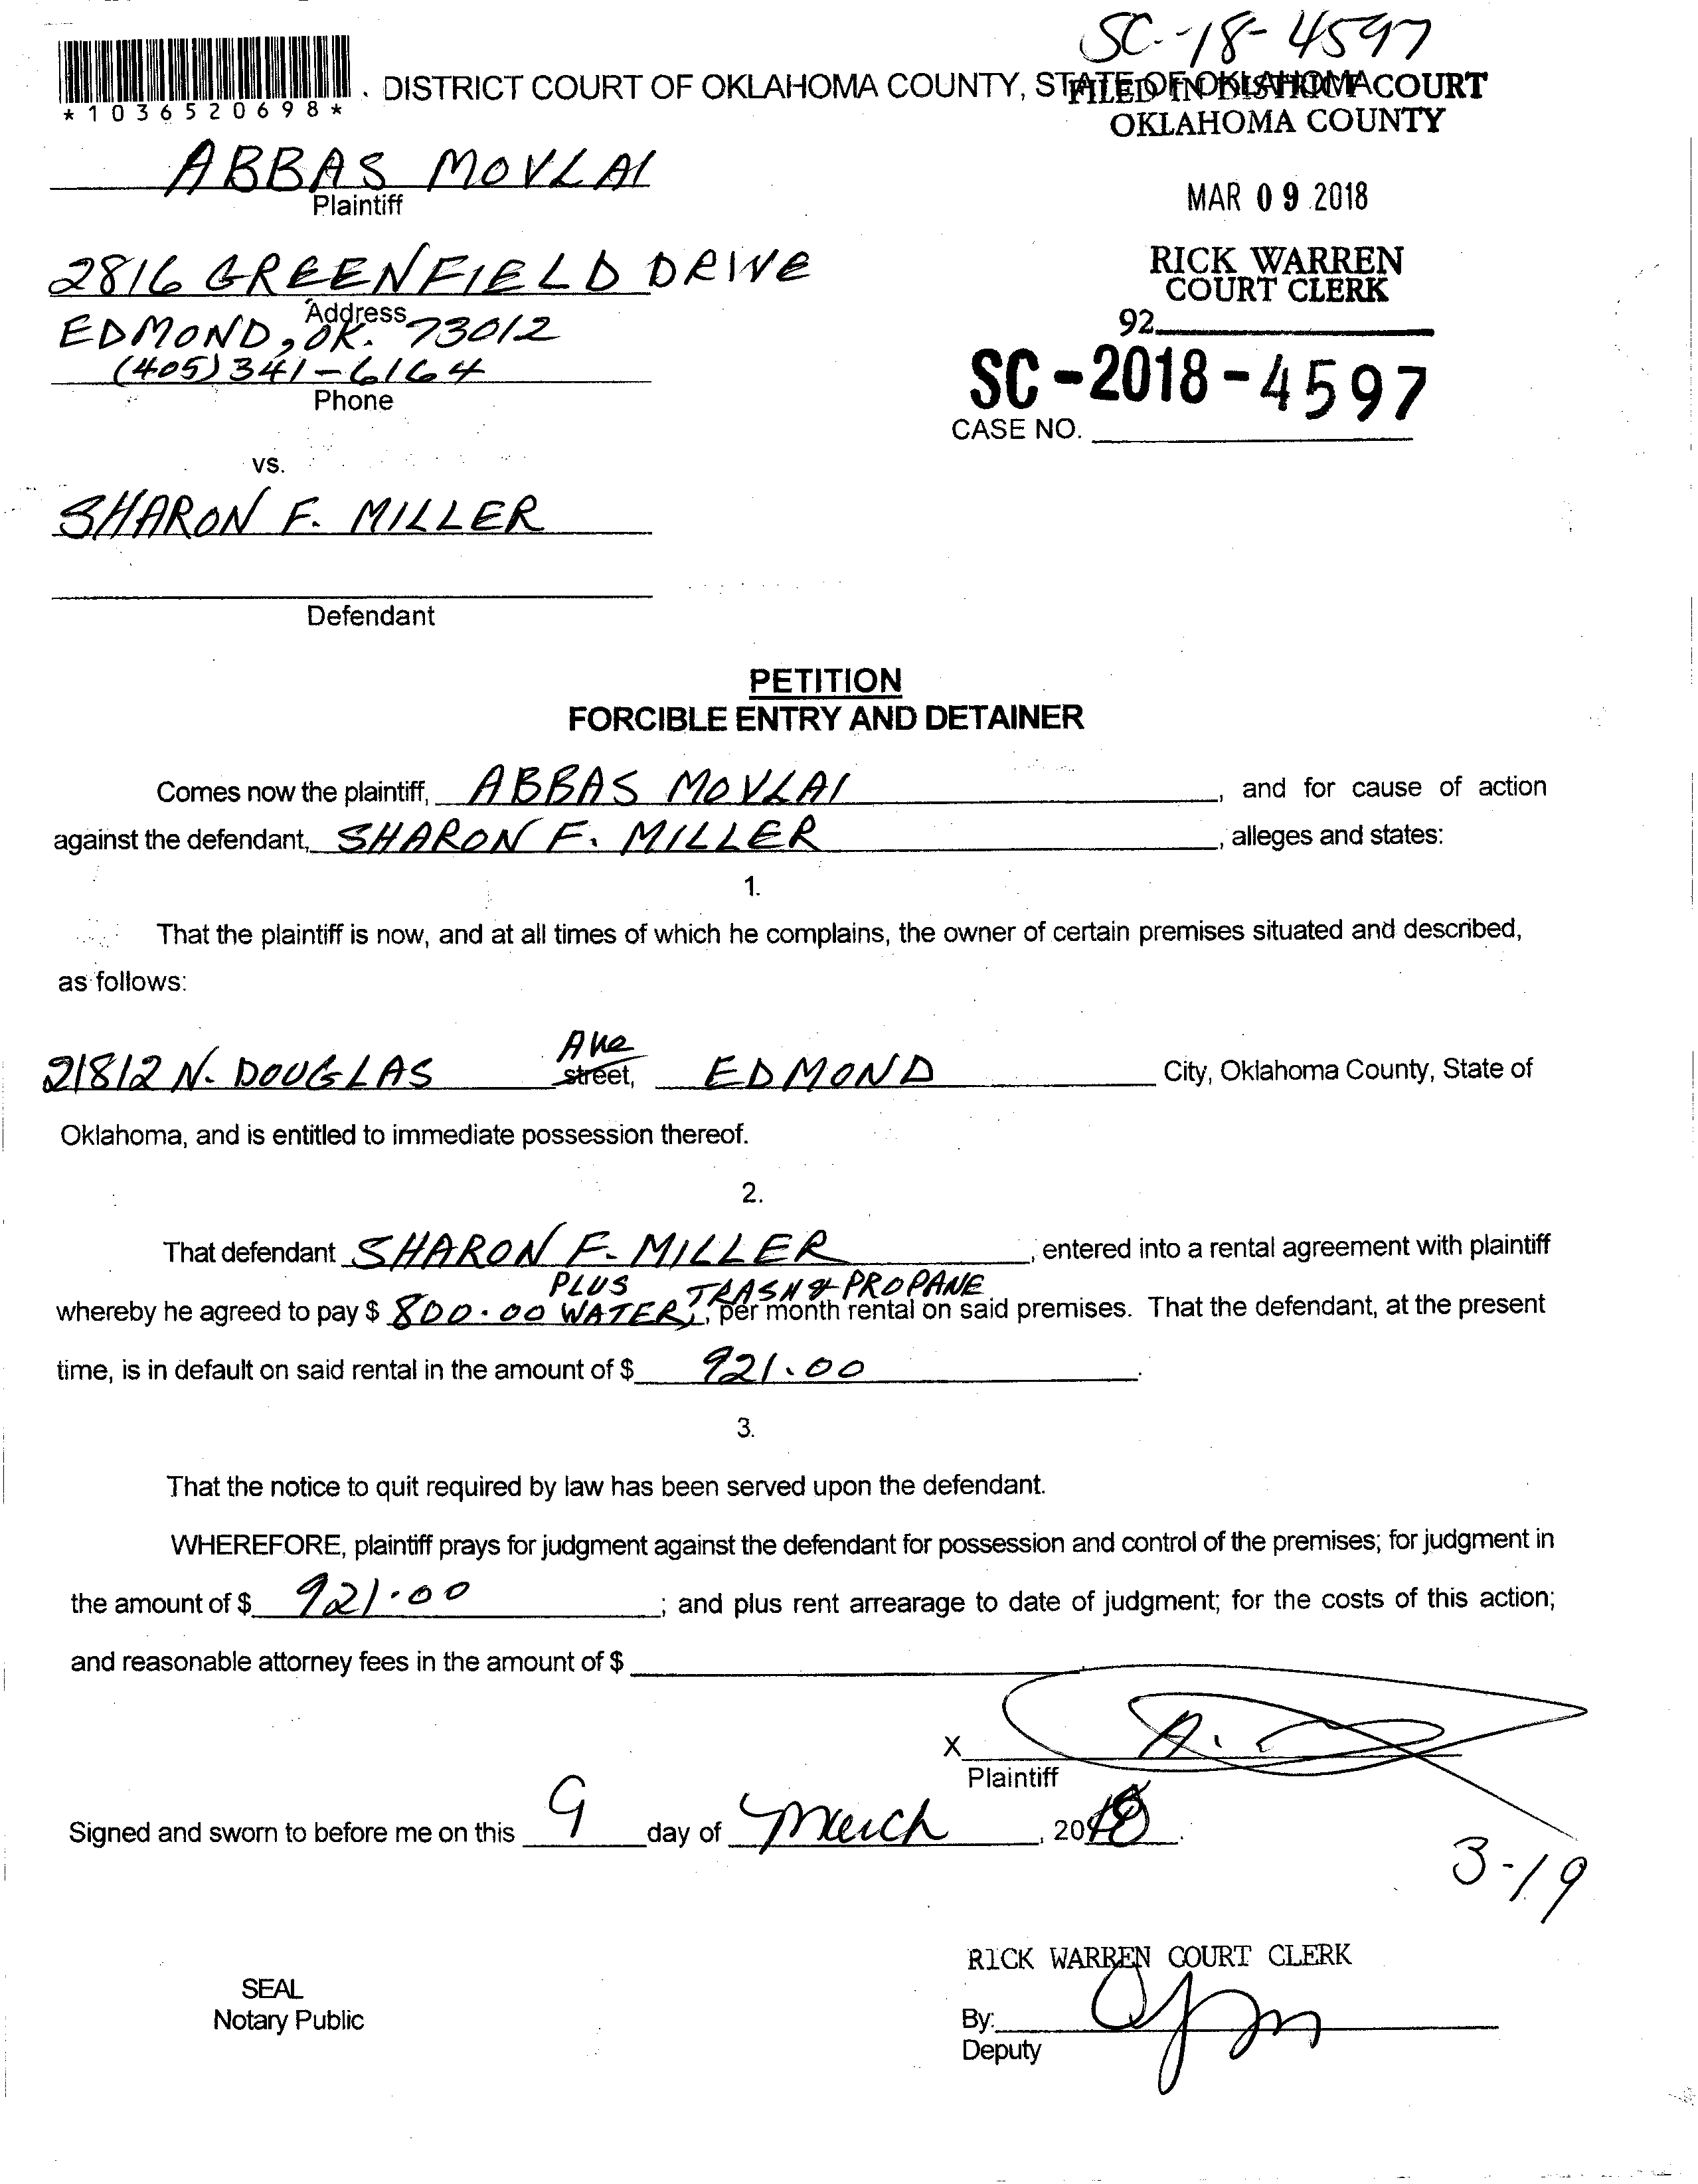 SC-18-4597
*1036520698*
. DISTRICT COURT OF OKLAHOMA COUNTY, STATE OF OKLAHOMA
FILED IN DISTRICT COURT
OKLAHOMA COUNTY
ABBAS MOVLAI
Plaintiff
MAR 09 2018
2816 GREENFIELD DRIVE
Address
RICK WARREN
COURT CLERK
EDMOND, OK. 73012
92
(405) 341-6164
Phone
SC-2018-4597
CASE NO.
vs.
SHARON F. MILLER
Defendant
PETITION
FORCIBLE ENTRY AND DETAINER
Comes now the plaintiff, ABBAS MOVLAI, and for cause of action
against the defendant, SHARON F. MILLER, alleges and states:
1.
That the plaintiff is now, and at all times of which he complains, the owner of certain premises situated and described,
as follows:
21812 N. DOUGLAS Ave street, EDMOND City, Oklahoma County, State of
Oklahoma, and is entitled to immediate possession thereof.
2.
That defendant SHARON F. MILLER, entered into a rental agreement with plaintiff
PLUS TRASH & PROPANE
whereby he agreed to pay $ 800.00 WATER, per month rental on said premises. That the defendant, at the present
time, is in default on said rental in the amount of $ 921.00.
3.
That the notice to quit required by law has been served upon the defendant.
WHEREFORE, plaintiff prays for judgment against the defendant for possession and control of the premises; for judgment in
the amount of $ 921.00; and plus rent arrearage to date of judgment; for the costs of this action;
and reasonable attorney fees in the amount of $
X
Plaintiff
Signed and sworn to before me on this 9 day of March, 2018.
3-19
RICK WARREN COURT CLERK
SEAL
Notary Public
By:
Deputy